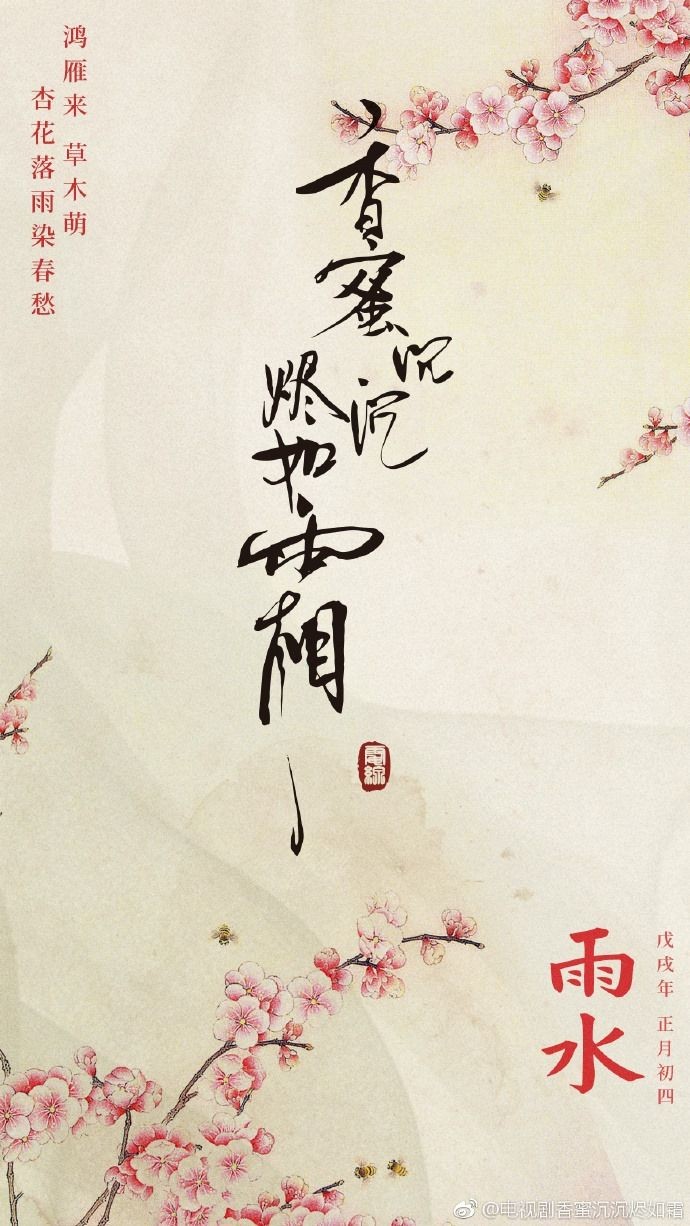 鸿雁来 草木萌
杏花落雨染春愁
香蜜沉沉
烬如霜
雨水
戊戌年 正月初四
@电视剧香蜜沉沉烬如霜